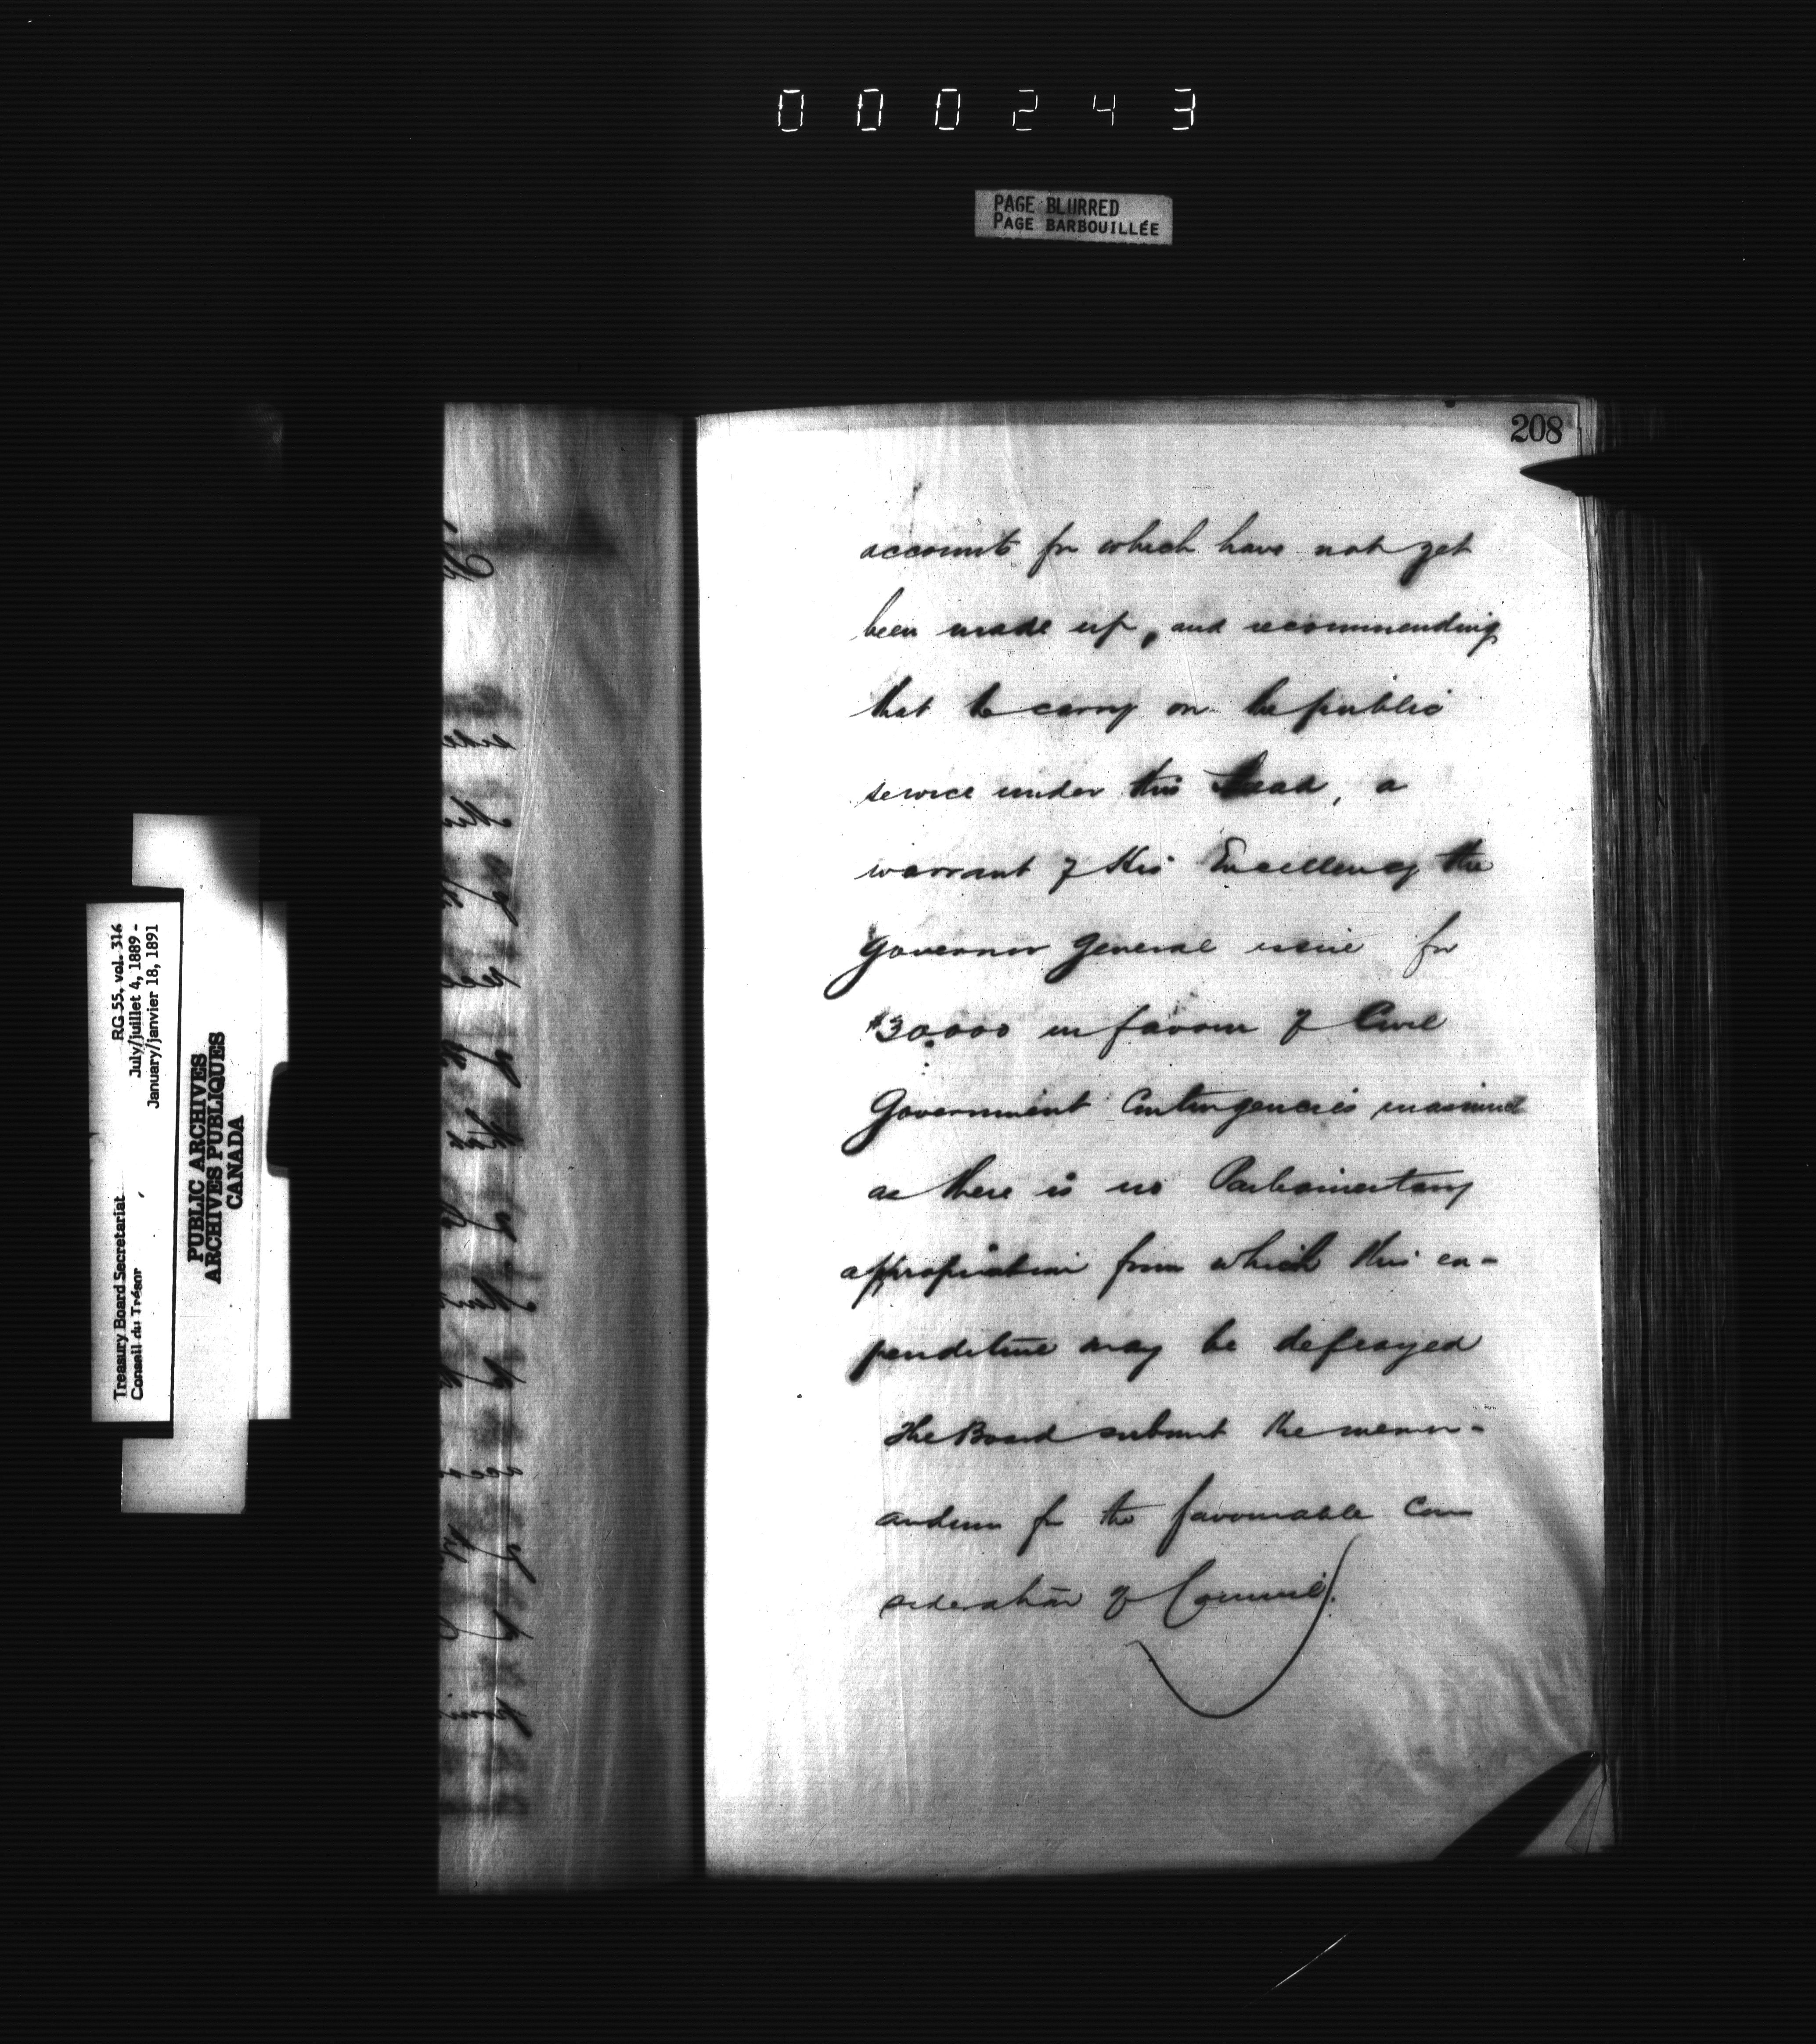 000243
PAGE BLURRED
PAGE BARBOUILLÉE
208
accounts for which have not yet
been made up, and recommending
that to carry on the public
service under this head, a
warrant of His Excellency the
Governor General issue for
$30,000 in favour of Civil
Government Contingencies inasmuch
as there is no Parliamentary
appropriation from which this ex-
penditure may be defrayed
The Board submit the memor-
andum for the favourable con
sideration of Council.
RG 55, vol. 316
July/juillet 4, 1889 -
January/janvier 18, 1891
Treasury Board Secretariat
Conseil du Trésor
PUBLIC ARCHIVES
ARCHIVES PUBLIQUES
CANADA